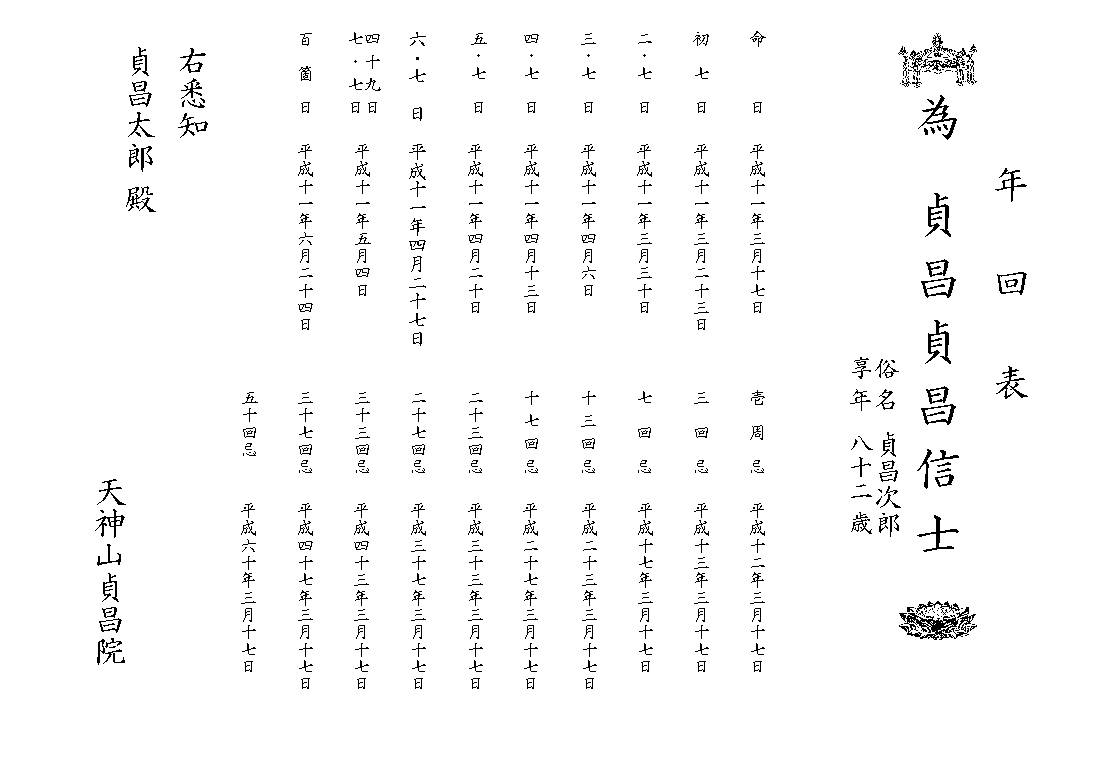 年回表
為 貞昌貞昌信士
俗名 貞昌次郎
享年 八十二歳
命日 平成十一年三月十七日
初七日 平成十一年三月二十三日
二・七日 平成十一年三月三十日
三・七日 平成十一年四月六日
四・七日 平成十一年四月十三日
五・七日 平成十一年四月二十日
六・七日 平成十一年四月二十七日
四十九日
七・七日 平成十一年五月四日
百箇日 平成十一年六月二十四日
壱周忌 平成十二年三月十七日
三回忌 平成十三年三月十七日
七回忌 平成十七年三月十七日
十三回忌 平成二十三年三月十七日
十七回忌 平成二十七年三月十七日
二十三回忌 平成三十三年三月十七日
二十七回忌 平成三十七年三月十七日
三十三回忌 平成四十三年三月十七日
三十七回忌 平成四十七年三月十七日
五十回忌 平成六十年三月十七日
右悉知
貞昌太郎殿
天神山貞昌院